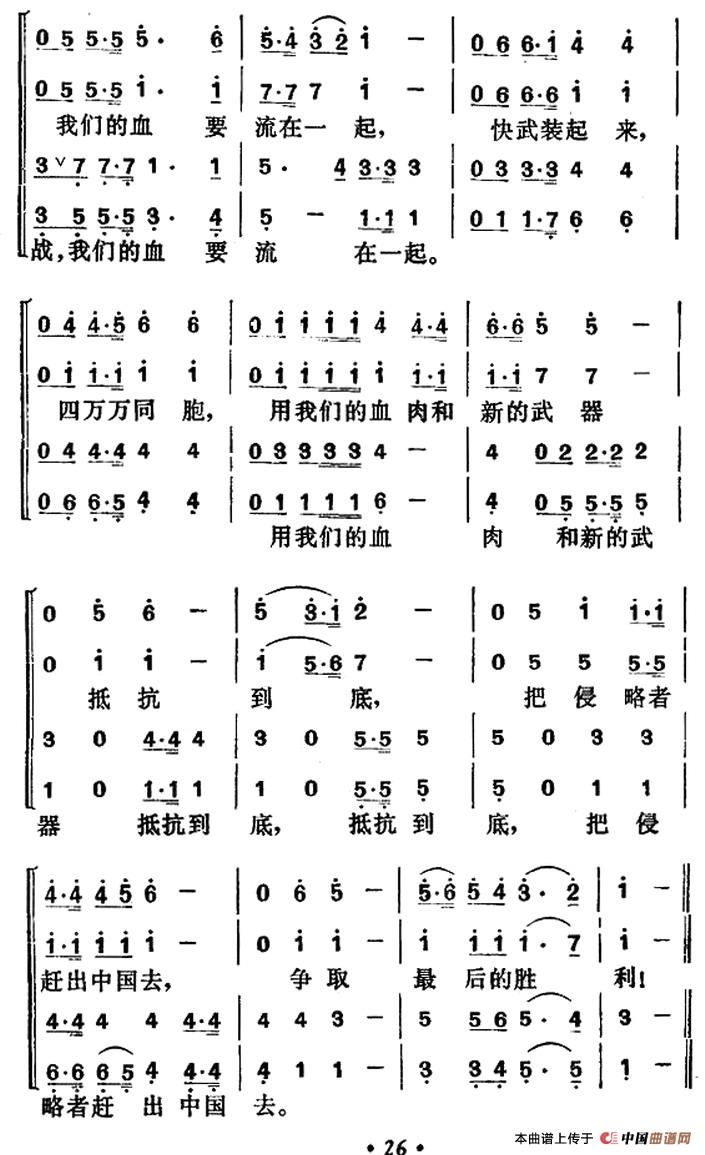 0 5 5·5 5· 6 | 5·4 3 2 1 － | 0 6 6·1 4 4 |
0 5 5·5 1· 1 | 7·7 7 1 － | 0 6 6·6 1 1 |
我们的血 要 流在一 起， 快武装起 来，
3 ∨ 7 7·7 1· 1 | 5· 4 3·3 3 | 0 3 3·3 4 4 |
3 5 5·5 3· 4 | 5 － 1·1 1 | 0 1 1·7 6 6 |
战，我们的血 要 流 在一起。
0 4 4·5 6 6 | 0 1 1 1 1 4 4·4 | 6·6 5 5 － |
0 1 1·1 1 1 | 0 1 1 1 1 1 1·1 | 1·1 7 7 － |
四万万同 胞， 用我们的血 肉和 新的武 器
0 4 4·4 4 4 | 0 3 3 3 3 4 － | 4 0 2 2·2 2 |
0 6 6·5 4 4 | 0 1 1 1 1 6 － | 4 0 5 5·5 5 |
用我们的血 肉 和新的武
0 5 6 － | 5 3·1 2 － | 0 5 1 1·1 |
0 1 1 － | 1 5·6 7 － | 0 5 5 5·5 |
抵 抗 到 底， 把 侵 略者
3 0 4·4 4 | 3 0 5·5 5 | 5 0 3 3 |
1 0 1·1 1 | 1 0 5·5 5 | 5 0 1 1 |
器 抵抗到 底， 抵抗到 底， 把 侵
4·4 4 5 6 － | 0 6 5 － | 5·6 5 4 3· 2 | 1 － ‖
1·1 1 1 1 － | 0 1 1 － | 1 1 1 1· 7 | 1 － ‖
赶出中国去， 争 取 最 后的胜 利！
4·4 4 4 4·4 | 4 4 3 － | 5 5 6 5· 4 | 3 － ‖
6·6 6 5 4 4·4 | 4 1 1 － | 3 3 4 5· 5 | 1 － ‖
略者赶 出 中国 去。
· 26 ·
本曲谱上传于 中国曲谱网